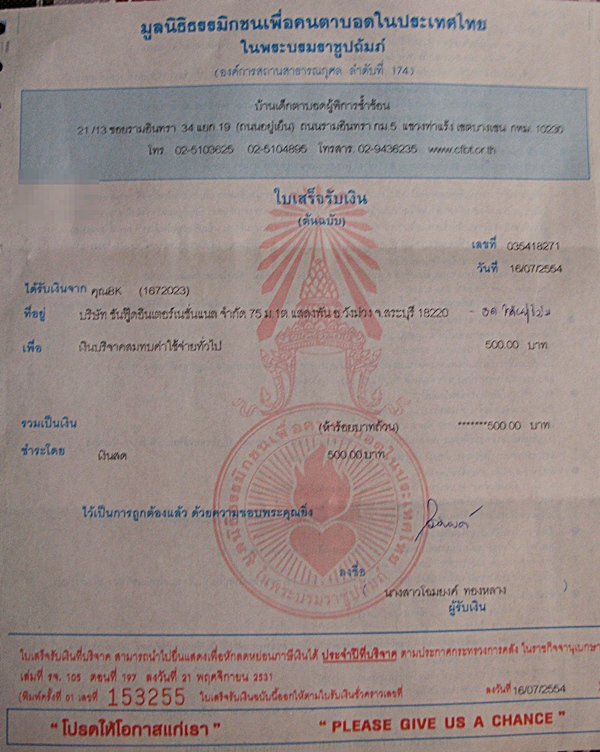 มูลนิธิธรรมิกชนเพื่อคนตาบอดในประเทศไทย
ในพระบรมราชูปถัมภ์
(องค์การสถานสาธารณกุศล ลำดับที่ 174)
บ้านเด็กตาบอดผู้พิการซ้ำซ้อน
21/13 ซอยรามอินทรา 34 แยก 19 (ถนนอยู่เย็น) ถนนรามอินทรา กม.5 แขวงท่าแร้ง เขตบางเขน กทม. 10230
โทร. 02-5103625 02-5104895 โทรสาร. 02-9436235 www.cfbt.or.th
ใบเสร็จรับเงิน
(ต้นฉบับ)
เลขที่ 035418271
วันที่ 16/07/2554
ได้รับเงินจาก คุณBK (1672023)
ที่อยู่ บริษัท ซันฟู้ดอินเตอร์เนชั่นแนล จำกัด 75 ม.1ต.แสลงพัน อ.วังม่วง จ.สระบุรี 18220
เพื่อ เงินบริจาคสมทบค่าใช้จ่ายทั่วไป 500.00 บาท
รวมเป็นเงิน (ห้าร้อยบาทถ้วน) *******500.00 บาท
ชำระโดย เงินสด 500.00 บาท
ไว้เป็นการถูกต้องแล้ว ด้วยความขอบพระคุณยิ่ง
ลงชื่อ
( นางสาวโฉมยงค์ ทองหลาง )
ผู้รับเงิน
มูลนิธิธรรมิกชนเพื่อคนตาบอดในประเทศไทย
ในพระบรมราชูปถัมภ์
ใบเสร็จรับเงินที่บริจาค สามารถนำไปยื่นแสดงเพื่อหักลดหย่อนภาษีเงินได้ ประจำปีที่บริจาค ตามประกาศกระทรวงการคลัง ในราชกิจจานุเบกษา
เล่มที่ รจ. 105 ตอนที่ 197 ลงวันที่ 21 พฤศจิกายน 2531
(พิมพ์ครั้งที่ 01 เลขที่ 153255 ใบเสร็จรับเงินฉบับนี้ออกให้ตามใบรับเงินชั่วคราวเลขที่ ลงวันที่ 16/07/2554
"โปรดให้โอกาสแก่เรา" "PLEASE GIVE US A CHANCE"